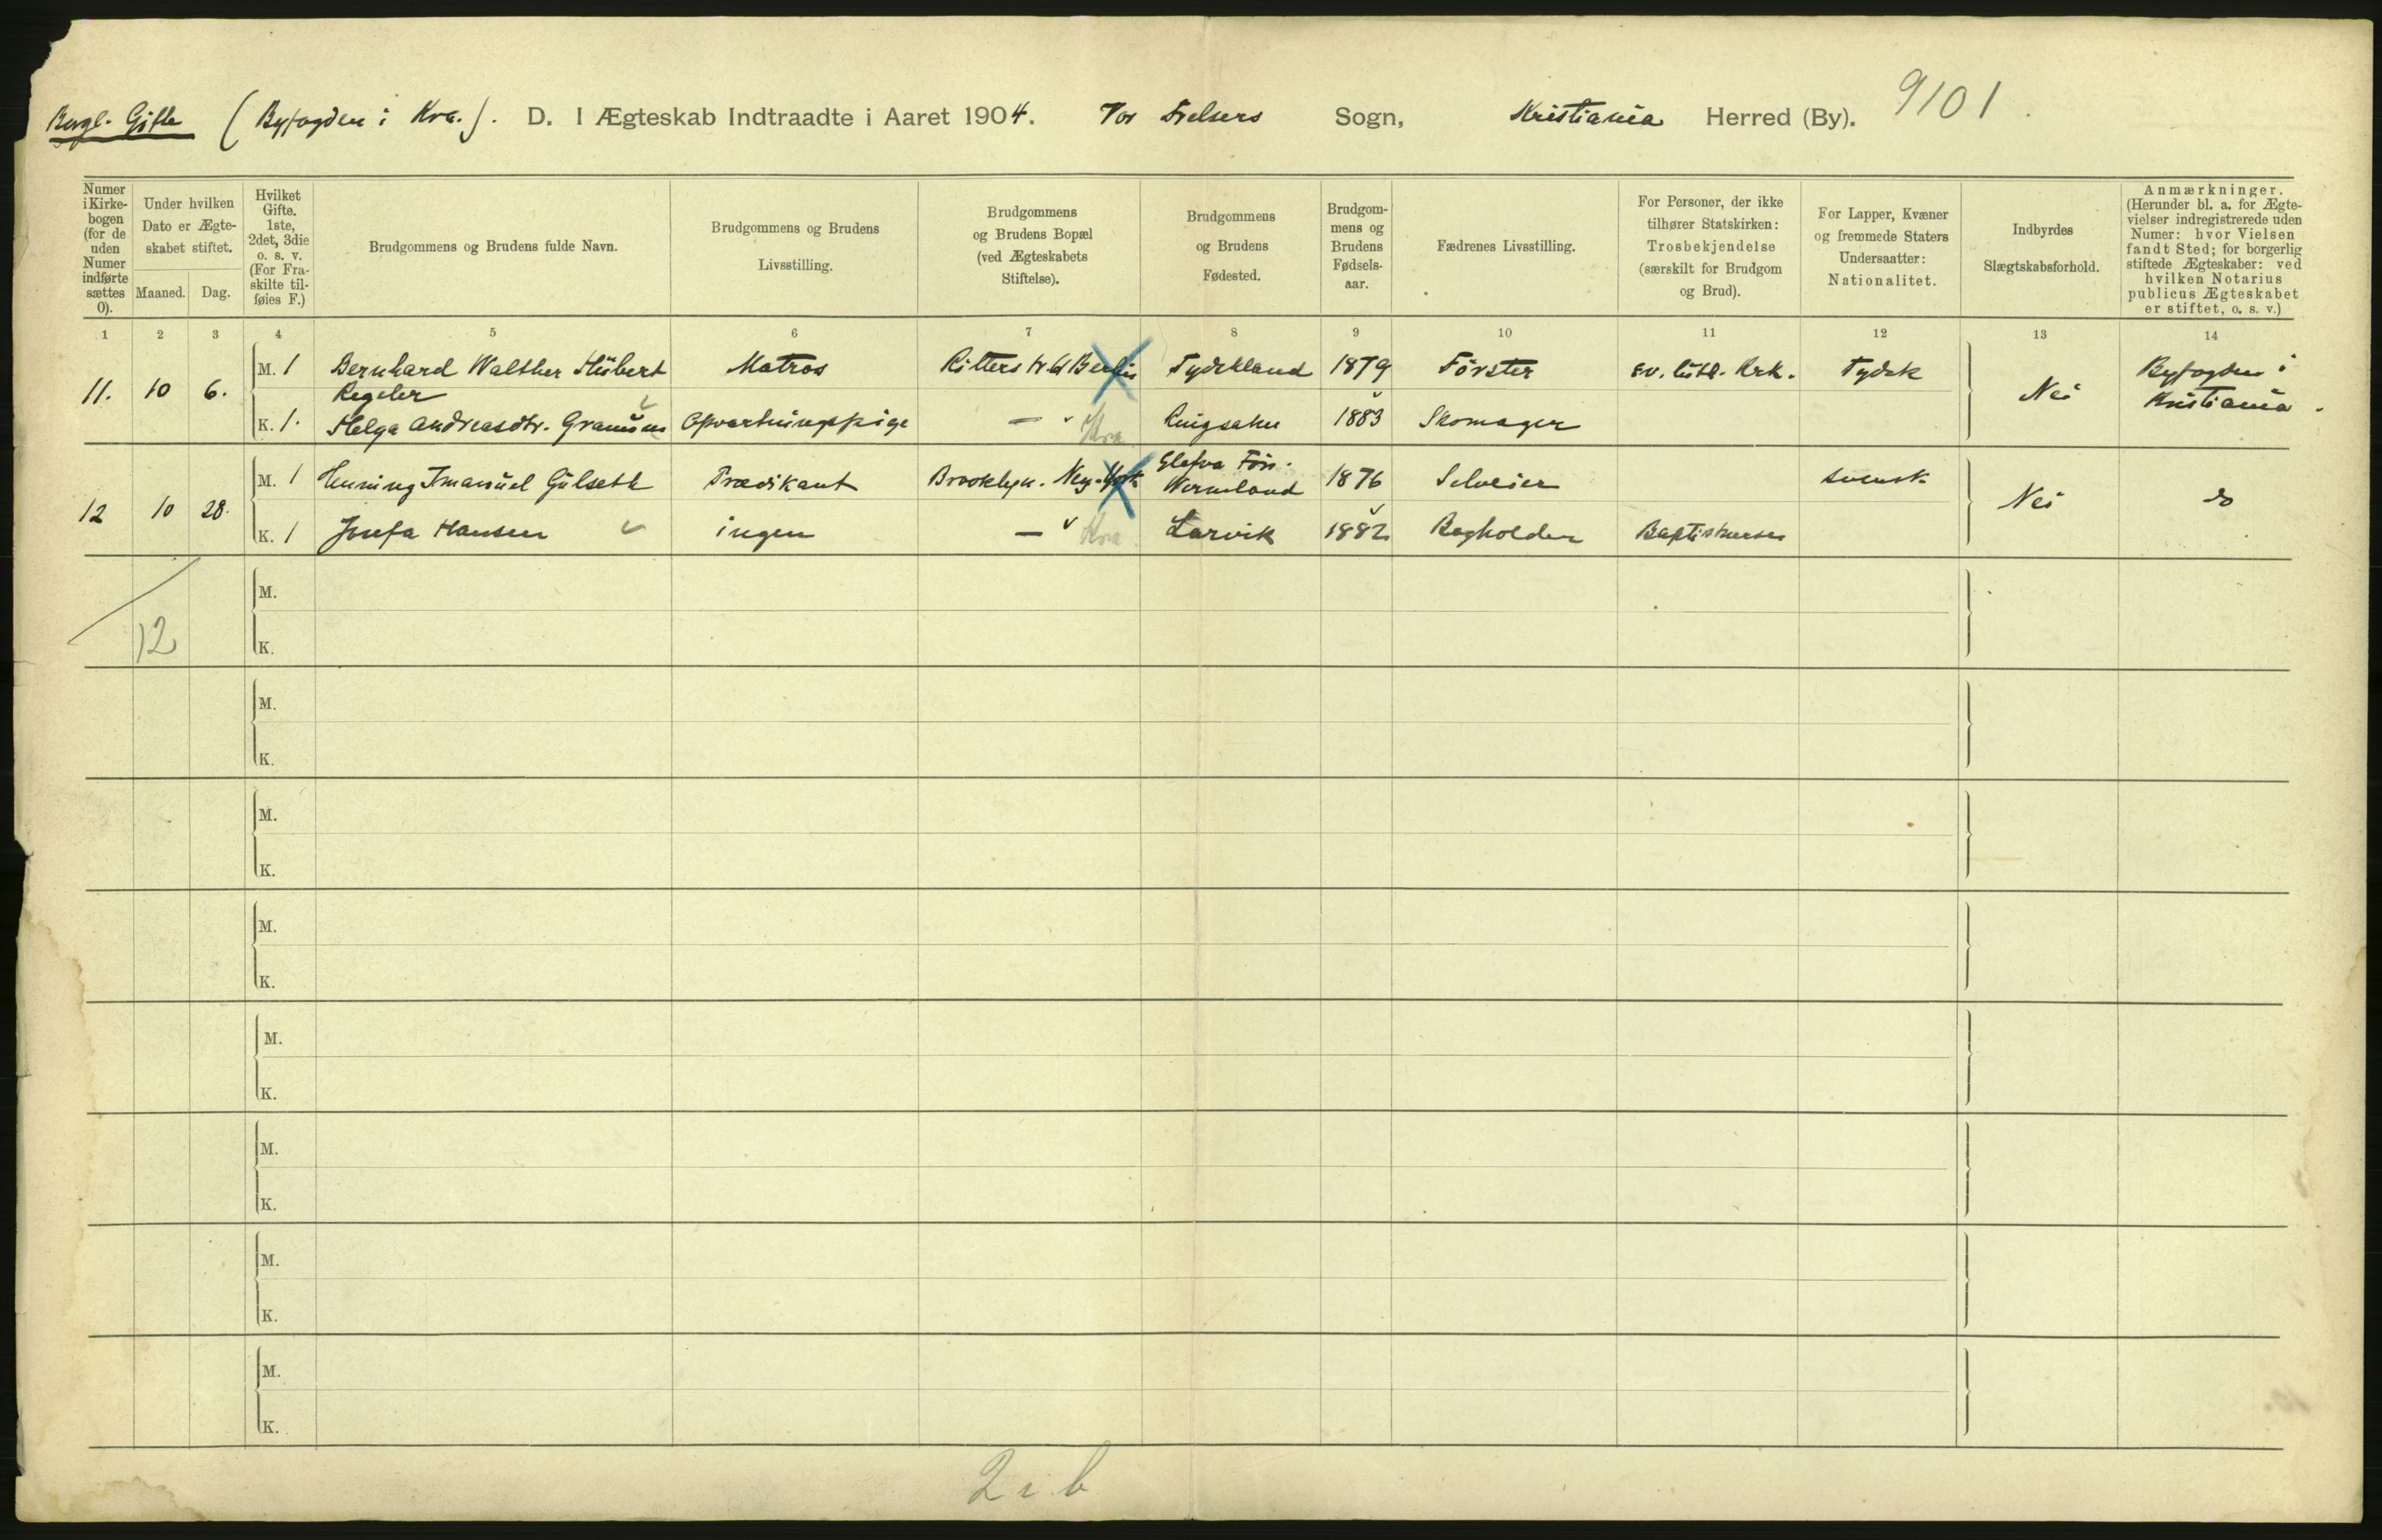 Borgl. Gifte (Byfogden i Kra.). D. I Ægteskab Indtraadte i Aaret 1904. Vor Frelsers Sogn, Kristiania Herred (By). 9101
Numer i Kirke-bogen (for de uden Numer indførte sættes 0).
Under hvilken Dato er Ægte-skabet stiftet.
Maaned. Dag.
Hvilket Gifte. 1ste, 2det, 3die o. s. v. (For Fra-skilte til-føies F.)
Brudgommens og Brudens fulde Navn.
Brudgommens og Brudens Livsstilling.
Brudgommens og Brudens Bopæl (ved Ægteskabets Stiftelse).
Brudgommens og Brudens Fødested.
Brudgom-mens og Brudens Fødsels-aar.
Fædrenes Livsstilling.
For Personer, der ikke tilhører Statskirken: Trosbekjendelse (særskilt for Brudgom og Brud).
For Lapper, Kvæner og fremmede Staters Undersaatter: Nationalitet.
Indbyrdes Slægtskabsforhold.
Anmærkninger. (Herunder bl. a. for Ægte-vielser indregistrerede uden Numer: hvor Vielsen fandt Sted; for borgerlig stiftede Ægteskaber: ved hvilken Notarius publicus Ægteskabet er stiftet, o. s. v.)
1 2 3 4 5 6 7 8 9 10 11 12 13 14
11. 10 6. M. 1 Bernhard Walther Hübert Regeler Matros Ritterstr 61 Berlin Tydskland 1879 Förster Ev. luth. Krk. Tydsk Nei Byfogden i Kristiania.
K. 1. Helga Andreasdtr. Opvartningspige — Kra Ringsaker 1883 Skomager
12 10 28. M. 1 Henning Imanuel Gulseth Prædikant Brooklyn. New-York Glafva Förs. Wermland 1876 Selveier svensk Nei do
K. 1 Josefa Hansen ingen — Kra Larvik 1882 Bogholder
12 M.
K.
M.
K.
M.
K.
M.
K.
M.
K.
M.
K.
M.
K.
M.
K.
2 i b